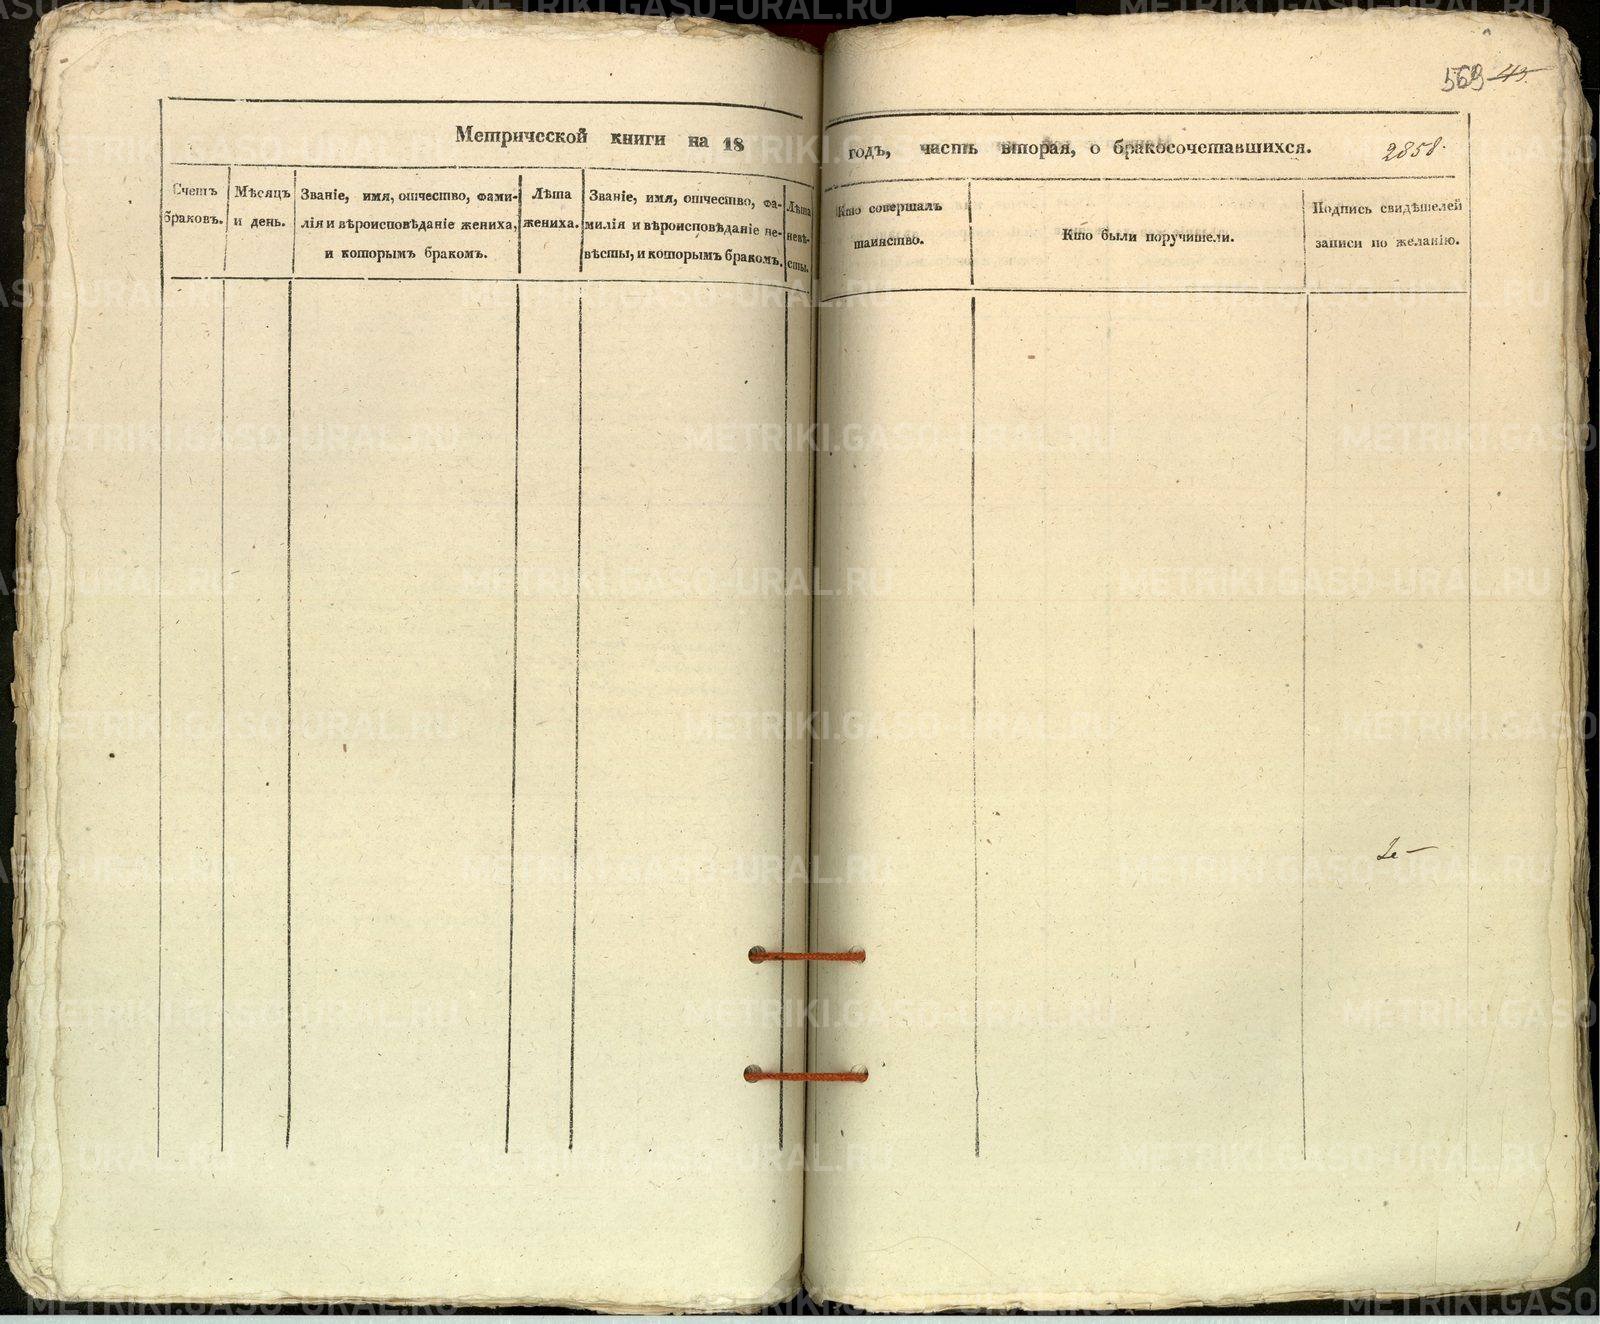 563 45
Метрической книги на 18 годъ, часть вторая, о бракосочетавшихся. 2858.
Счетъ
браковъ.
Мѣсяцъ
и день.
Званіе, имя, отчество, фами-
лія и вѣроисповѣданіе жениха,
и которымъ бракомъ.
Лѣта
жениха.
Званіе, имя, отчество, фа-
милія и вѣроисповѣданіе не-
вѣсты, и которымъ бракомъ.
Лѣта
невѣ-
сты.
Кто совершалъ
таинство.
Кто были поручители.
Подпись свидѣтелей
записи по желанію.
METRIKI.GASO-URAL.RU